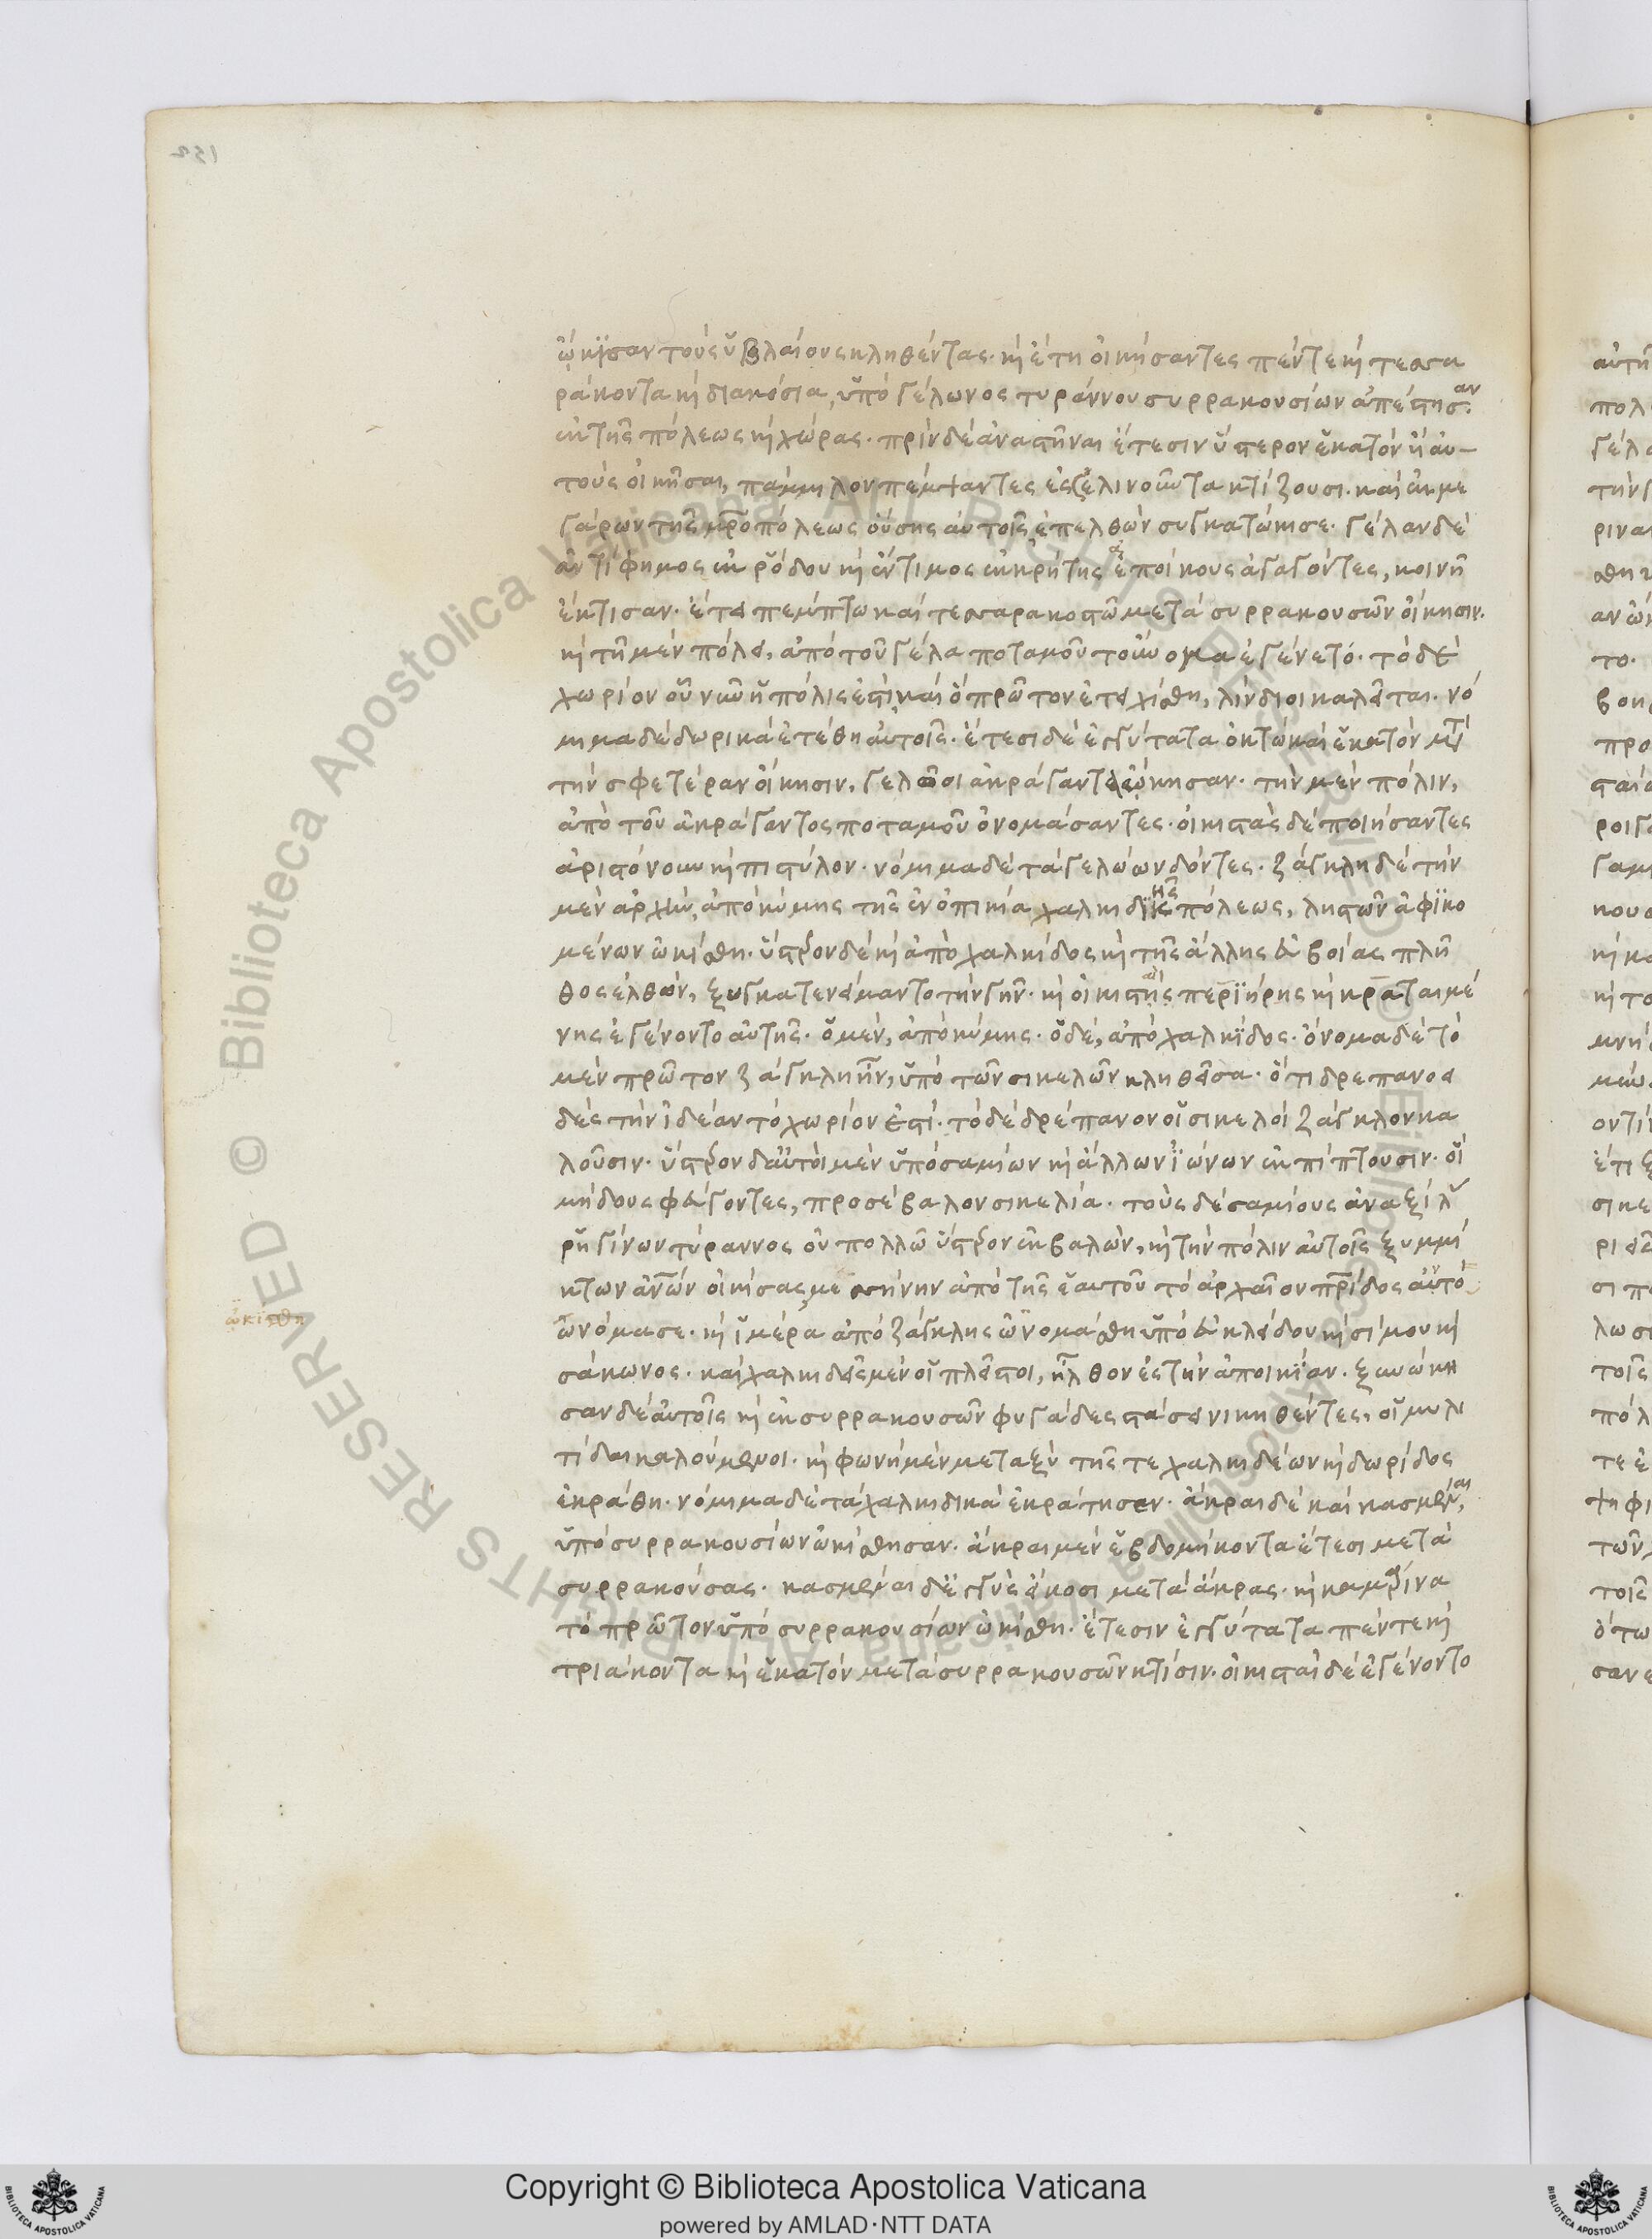 ᾤκϊσαν τοὺς ὑβλαίους κληθέντας· κὶ ἔτη οἰκήσαντες πέντε κὶ τεσσα
ράκοντα κὶ διακόσια, ὑπὸ γέλωνος τυράννου συρρακουσίων ἀπέστησαν
ἐκ τῆς πόλεως κὶ χώρας· πρὶν δὲ ἀναστῆναι ἔτεσιν ὕστερον ἑκατὸν ἢ αὐ-
τοὺς οἰκῆσαι, πάμμιλον πέμψαντες ἐς σελινοῦντα κτίζουσι· καὶ ἐκ με
γάρων τῆς μητροπόλεως οὔσης αὐτοῖς ἐπελθὼν συγκατῴκισε· γέλαν δὲ
ἀντίφημος ἐκ ῥόδου κὶ ἔντιμος ἐκ κρήτης ἐποίκους ἀγαγόντες, κοινῇ
ἔκτισαν· ἔτει πέμπτω καὶ τεσσαρακοστῶ μετὰ συρρακουσῶν οἴκησιν·
κὶ τῇ μὲν πόλει, ἀπὸ τοῦ γέλα ποταμοῦ τοὔνομα ἐγένετο· τὸ δὲ
χωρίον οὗ νῦν ἡ πόλις ἐστὶ καὶ ὃ πρῶτον ἐτειχίσθη, λίνδιοι καλεῖται· νό
μιμα δὲ δωρικὰ ἐτέθη αὐτοῖς· ἔτεσι δὲ ἐγγύτατα ὀκτὼ καὶ ἑκατὸν μετὰ
τὴν σφετέραν οἴκησιν, γελῶοι ἀκράγαντα ᾤκησαν· τὴν μὲν πόλιν,
ἀπὸ τοῦ ἀκράγαντος ποταμοῦ ὀνομάσαντες· οἰκιστὰς δὲ ποιήσαντες
ἀριστόνουν κὶ πιστύλον· νόμιμα δὲ τὰ γελώων δόντες· ζάγκλη δὲ τὴν
μὲν ἀρχὴν, ἀπὸ κύμης τῆς ἐν ὀπικία χαλκιδικῆς πόλεως, ληστῶν ἀφϊκο
μένων ὠκίσθη· ὕστερον δὲ κὶ ἀπὸ χαλκίδος κὶ τῆς ἄλλης εὐβοίας πλῆ
θος ἐλθὸν, ξυγκατενείμαντο τὴν γῆν· κὶ οἰκισταὶ περϊήρης κὶ κραταιμέ
νης ἐγένοντο αὐτῆς· ὁ μὲν, ἀπὸ κύμης· ὁ δὲ, ἀπὸ χαλκϊδος· ὄνομα δὲ τὸ
μὲν πρῶτον ζάγκλη ἦν, ὑπὸ τῶν σικελῶν κληθεῖσα· ὅτι δρεπανοει
δὲς τὴν ἰδέαν τὸ χωρίον ἐστί· τὸ δὲ δρέπανον οἱ σικελοὶ ζάγκλον κα
λοῦσιν· ὕστερον δ' αὐτοὶ μὲν ὑπὸ σαμίων κὶ ἄλλων ἰώνων ἐκπίπτουσιν· οἳ
μήδους φεύγοντες, προσέβαλον σικελία· τοὺς δὲ σαμίους ἀναξίλας
ῥηγίνων τύραννος οὐ πολλῶ ὕστερον ἐκβαλὼν, κὶ τὴν πόλιν αὐτοῖς ξυμμί
κτων ἀνθρώπων οἰκίσας, μεσσήνην ἀπὸ τῆς ἑαυτοῦ τὸ ἀρχαῖον πατρίδος αὐτὸ
ὠνόμασε· κὶ ἱμέρα ἀπὸ ζάγκλης ὠνομάσθη ὑπὸ εὐκλείδου κὶ σίμου κὶ
ὠκίσθη
σάκωνος· καὶ χαλκιδεῖς μὲν οἱ πλεῖστοι, ἦλθον ἐς τὴν ἀποικϊαν· ξυνῴκη
σαν δὲ αὐτοῖς κὶ ἐκ συρρακουσῶν φυγάδες στάσει νικηθέντες, οἱ μυλη
τίδαι καλούμενοι· κὶ φωνὴ μὲν μεταξὺ τῆς τε χαλκιδέων κὶ δωρίδος
ἐκράθη· νόμιμα δὲ τὰ χαλκιδικὰ ἐκράτησεν· ἄκραι δὲ καὶ κασμέναι,
ὑπὸ συρρακουσίων ὠκίσθησαν· ἄκραι μὲν ἑβδομήκοντα ἔτεσι μετὰ
συρρακούσας· κασμέναι δὲ ἐγγὺς εἴκοσι μετὰ ἄκρας· κὶ καμαρίνα
τὸ πρῶτον ὑπὸ συρρακουσίων ὠκίσθη· ἔτεσιν ἐγγύτατα πέντε κὶ
τριάκοντα κὶ ἑκατὸν μετὰ συρρακουσῶν κτίσιν· οἰκισταὶ δὲ ἐγένοντο
Copyright © Biblioteca Apostolica Vaticana
powered by AMLAD·NTT DATA